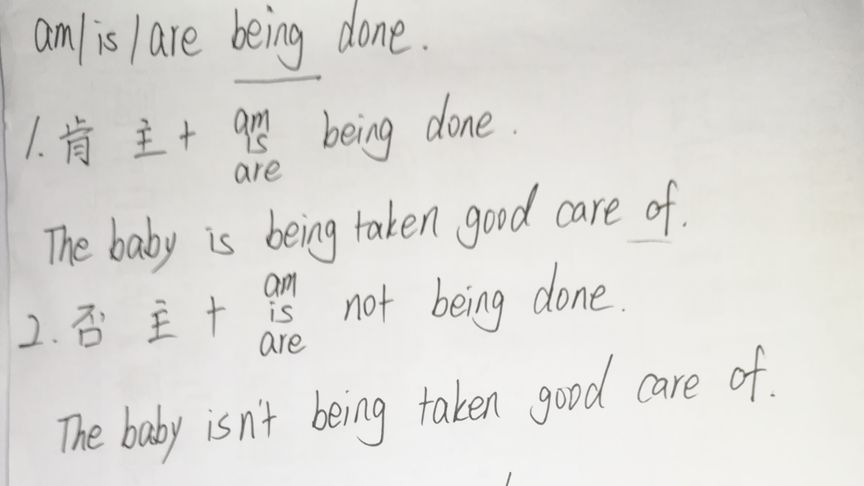 am/is/are being done.
1. 肯 主 + am is are being done.
The baby is being taken good care of.
2. 否 主 + am is are not being done.
The baby isn't being taken good care of.